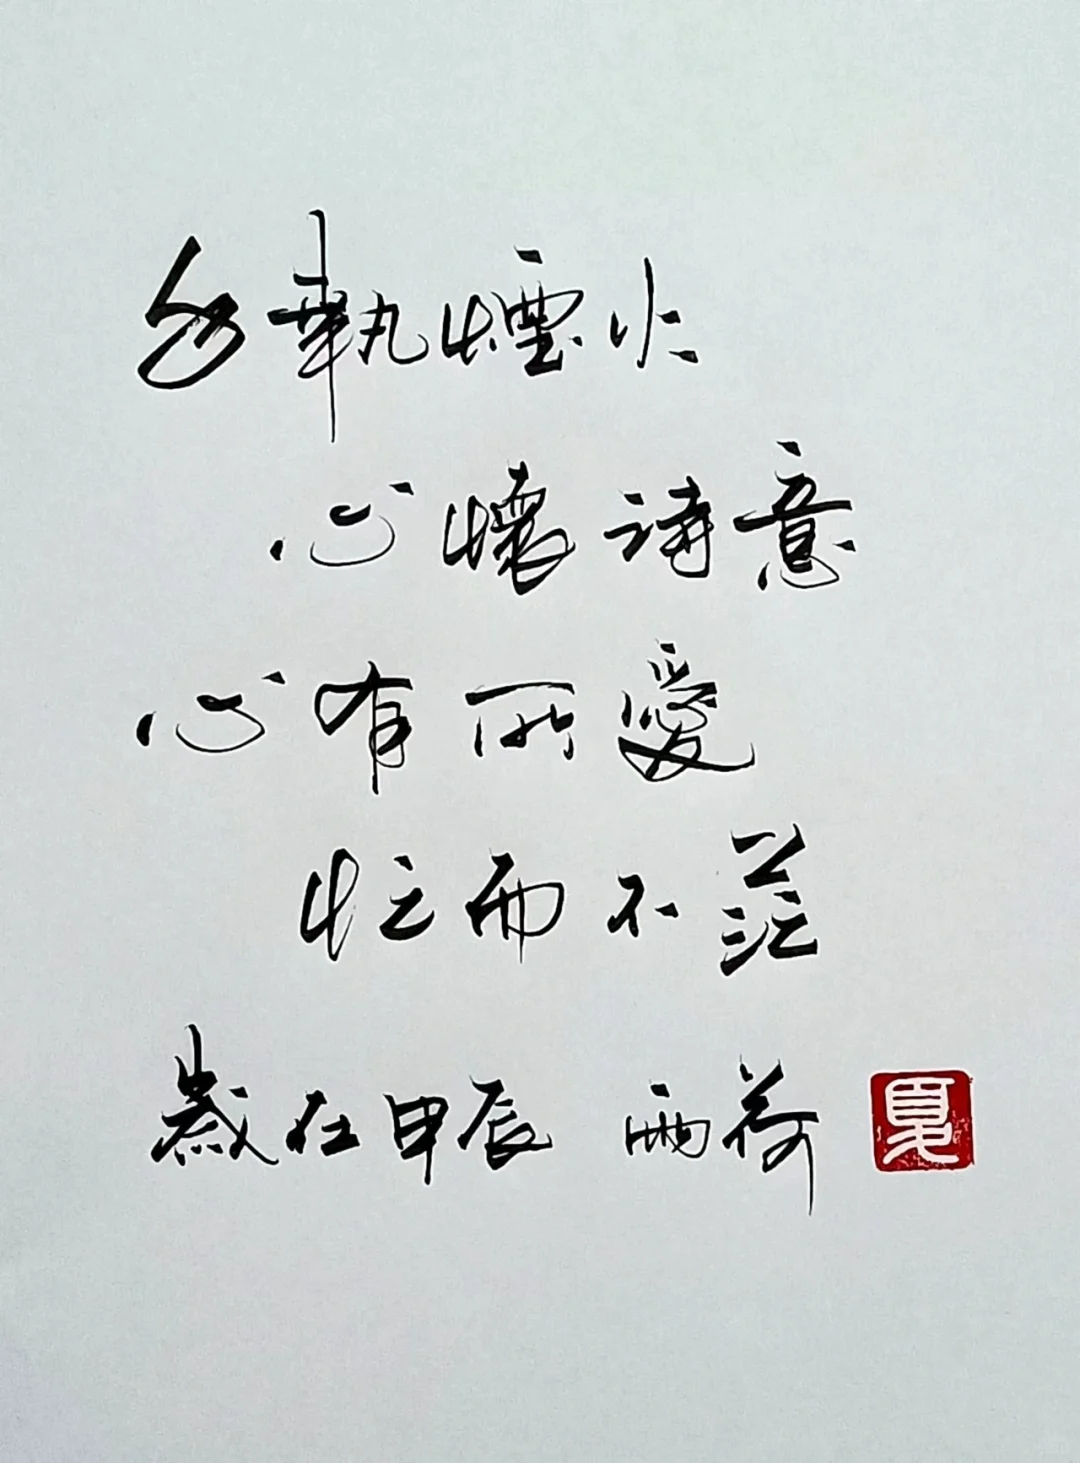 手執煙火
心懷诗意
心有所愛
忙而不茫
歲在甲辰 雨荷 夏